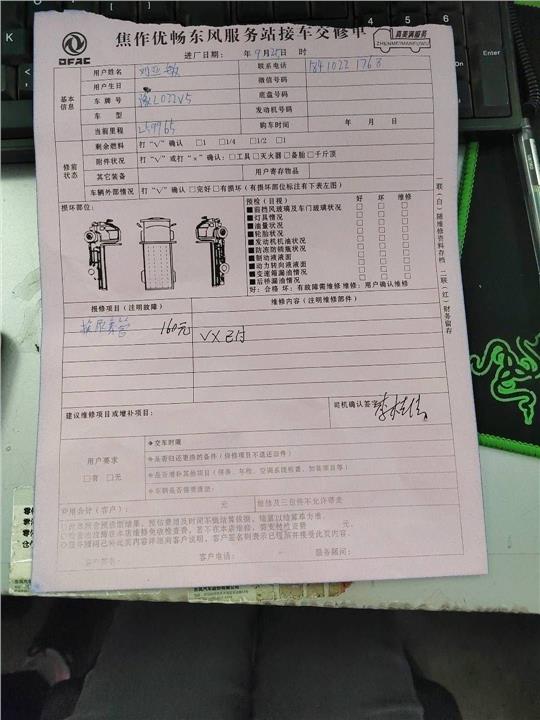 DFAC
焦作优畅东风服务站接车交修单
真美满服务
ZHENMEIMANFUWU
进厂日期: 年 9月25日 时
基本信息
用户姓名
联系电话
用户生日 微信号码
车牌号 豫L022V5 底盘号码
车型 发动机号码
当前里程 259965 购车时间 年 月 日
修前状态
剩余燃料 打“√”确认 □1 □1/4 □1/2 □1
附件状况 打“√”或打“×”确认: □工具 □灭火器 □备胎 □千斤顶
其它装备 用户寄存物品
车辆外部情况 打“√”确认 □完好 □有损坏 (有损坏部位标注有下表左图)
损坏部位:
预检(目视) 好 坏 维修
■前挡风玻璃及车门玻璃状况 □ □ □
■灯具情况 □ □ □
■油量状况 □ □ □
■轮胎状况 □ □ □
■发动机机油状况 □ □ □
■防冻防锈瓶状况 □ □ □
■制动液液面 □ □ □
■动力转向液液面 □ □ □
■变速箱漏油情况 □ □ □
■后桥漏油情况 □ □ □
好: 合格 坏: 有故障需维修 维修: 用户确认维修
一联(白)随维修资料存档 二联(红)财务留存
报修项目(注明故障) 维修内容(注明维修部件)
160元 VX已付
建议维修项目或增补项目:
司机确认签字
用户要求
□有 □无
◆交车时间
◆是否归还更换的备件(保修项目不退还旧件)
◆是否增补其他项目(保养、年检、空调系统检查、加装项目等)
◆车辆是否需要清洗:
费用合计(客户): 元 维修及三包件不允许带走
客户电话: 服务顾问: